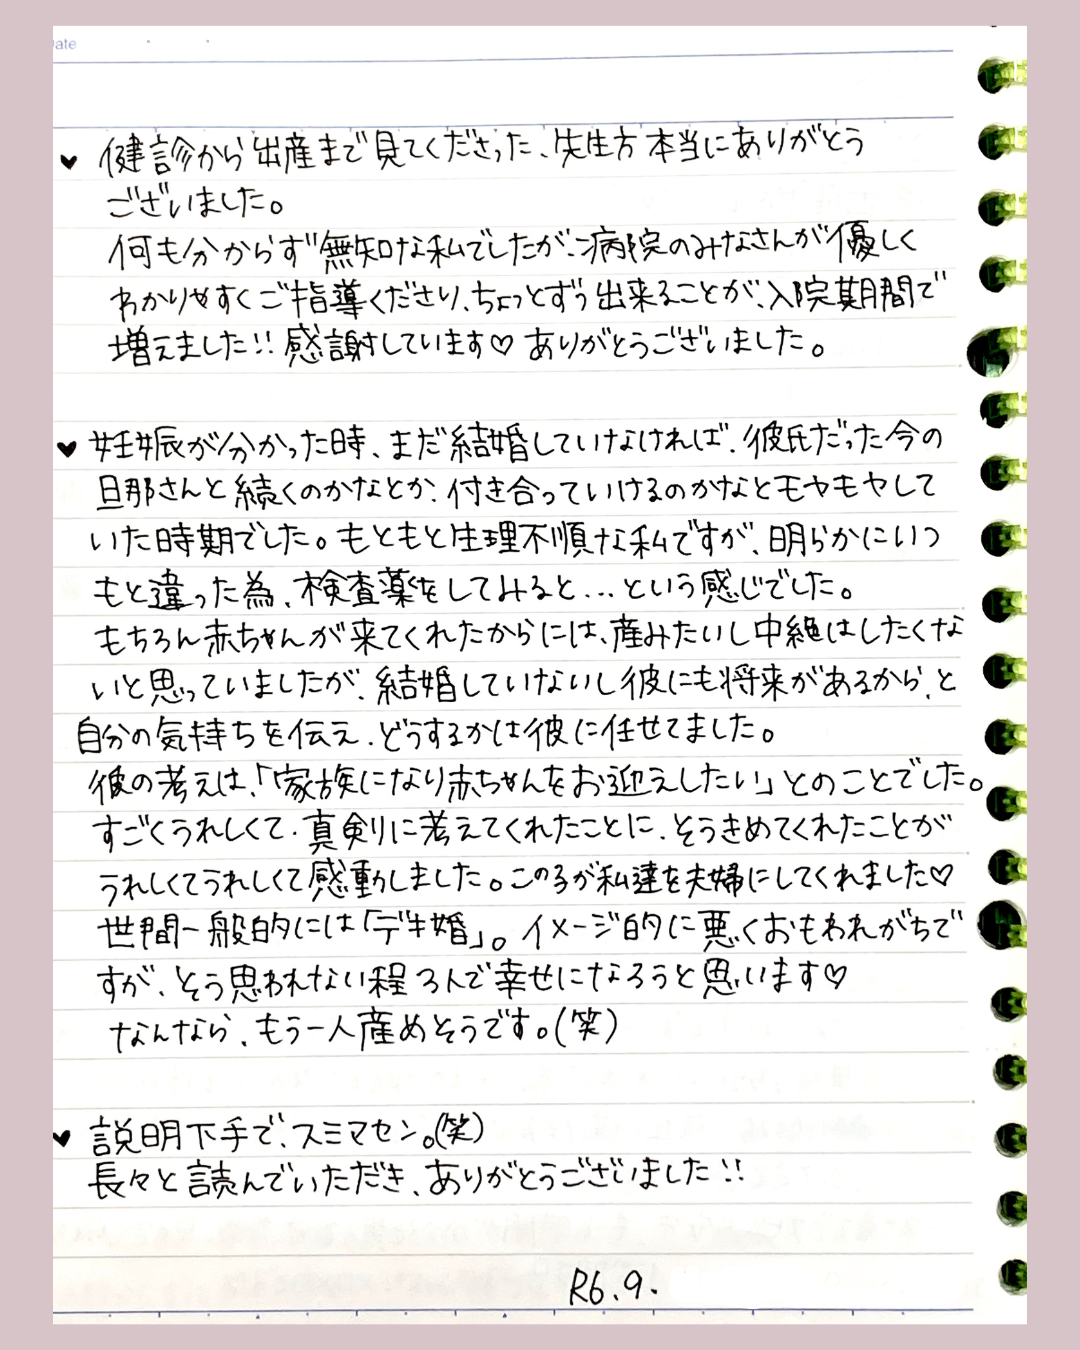 ate
♥ 健診から出産まで見てくださった、先生方本当にありがとう
ございました。
何も分からず無知な私でしたが、病院のみなさんが優しく
わかりやすくご指導くださり、ちょっとずつ出来ることが、入院期間で
増えました!! 感謝しています♡ ありがとうございました。
♥ 妊娠が分かった時、まだ結婚していなければ、彼氏だった今の
旦那さんと続くのかなとか、付き合っていけるのかなとモヤモヤして
いた時期でした。もともと生理不順な私ですが、明らかにいつ
もと違った為、検査薬をしてみると…という感じでした。
もちろん赤ちゃんが来てくれたからには、産みたいし中絶はしたくな
いと思っていましたが、結婚していないし彼にも将来があるから、と
自分の気持ちを伝え、どうするかは彼に任せてました。
彼の考えは、「家族になり赤ちゃんをお迎えしたい」とのことでした。
すごくうれしくて、真剣に考えてくれたことに、そうきめてくれたことが
うれしくてうれしくて感動しました。この子が私達を夫婦にしてくれました♡
世間一般的には「デキ婚」。イメージ的に悪くおもわれがちで
すが、そう思われない程3人で幸せになろうと思います♡
なんなら、もう一人産めそうです。(笑)
♥ 説明下手で、スミマセン。(笑)
長々と読んでいただき、ありがとうございました!!
R6.9.